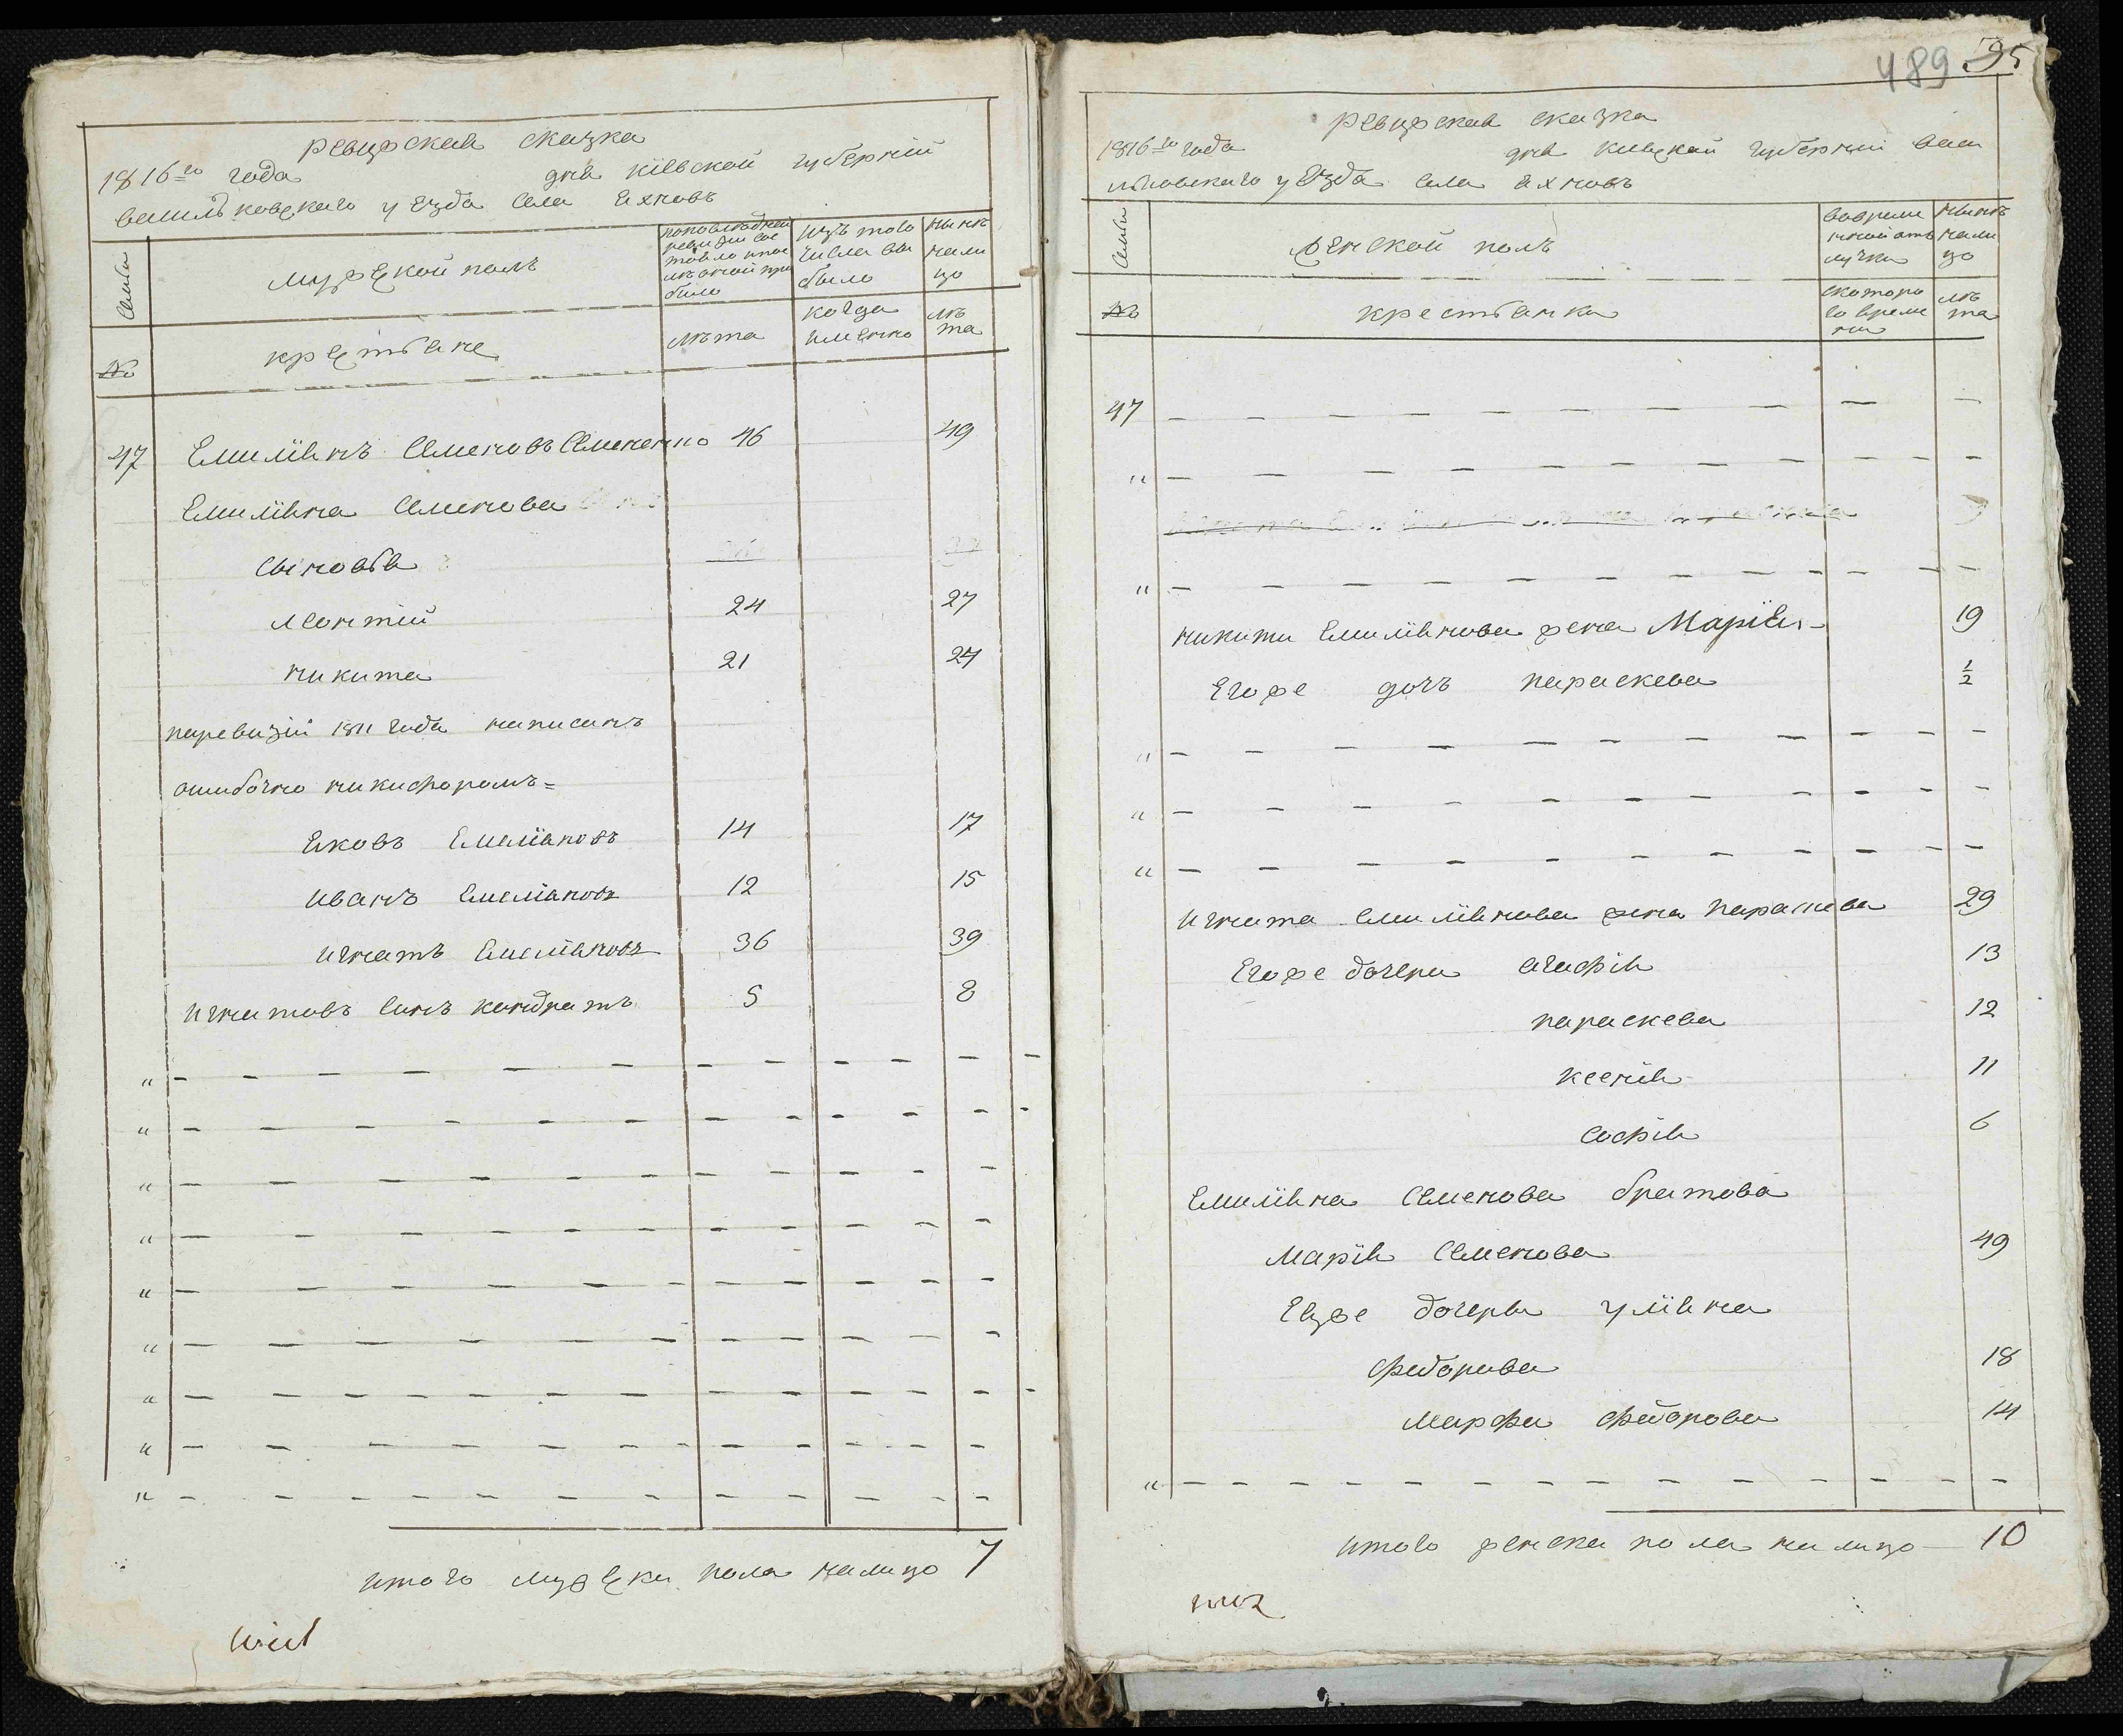 ревизская сказка
1816го года дня кіевской губерній
василковскаго уезда села яхновъ
Семьи
мужеской полъ
попоследней
ревизіи сос
тояло ипос
лѣ оной при
было
изъ того
числа вы
было
нынѣ
нали
цо
№
крестьяне
лѣта
когда
именно
лѣ
та
47 Емиліянъ Семеновъ Семененко 46 49
Емиліяна Семенова
сыновья
леонтій 24 27
никита 21 24
поревизіи 1811 года написанъ
ошибочно никифоромъ =
яковъ Емеліяновъ 14 17
иванъ Емеліяновъ 12 15
игнатъ Емеліяновъ 36 39
игнатовъ синъ кондратъ 5 8
итого мужеска пола налицо 7
489 95
ревизская сказка
1816го года дня кіевской губерніи васи
лковскаго уезда села яхновъ
Семьи
женской полъ
вовреме
нной отъ
лучки
нынѣ
нали
цо
№
крестьянки
скоторо
го време
ни
лѣ
та
47
никиты Емиліянова жена Марія 19
Егоже дочъ параскева 1/2
игната емиліянова жена параскева 29
Егоже дочери агафія 13
параскева 12
ксенія 11
софія 6
Емиліяна Семенова братова
Марія Семенова 49
Еяже дочеры уліяна
федорова 18
марфа федорова 14
итого женска пола налицо 10